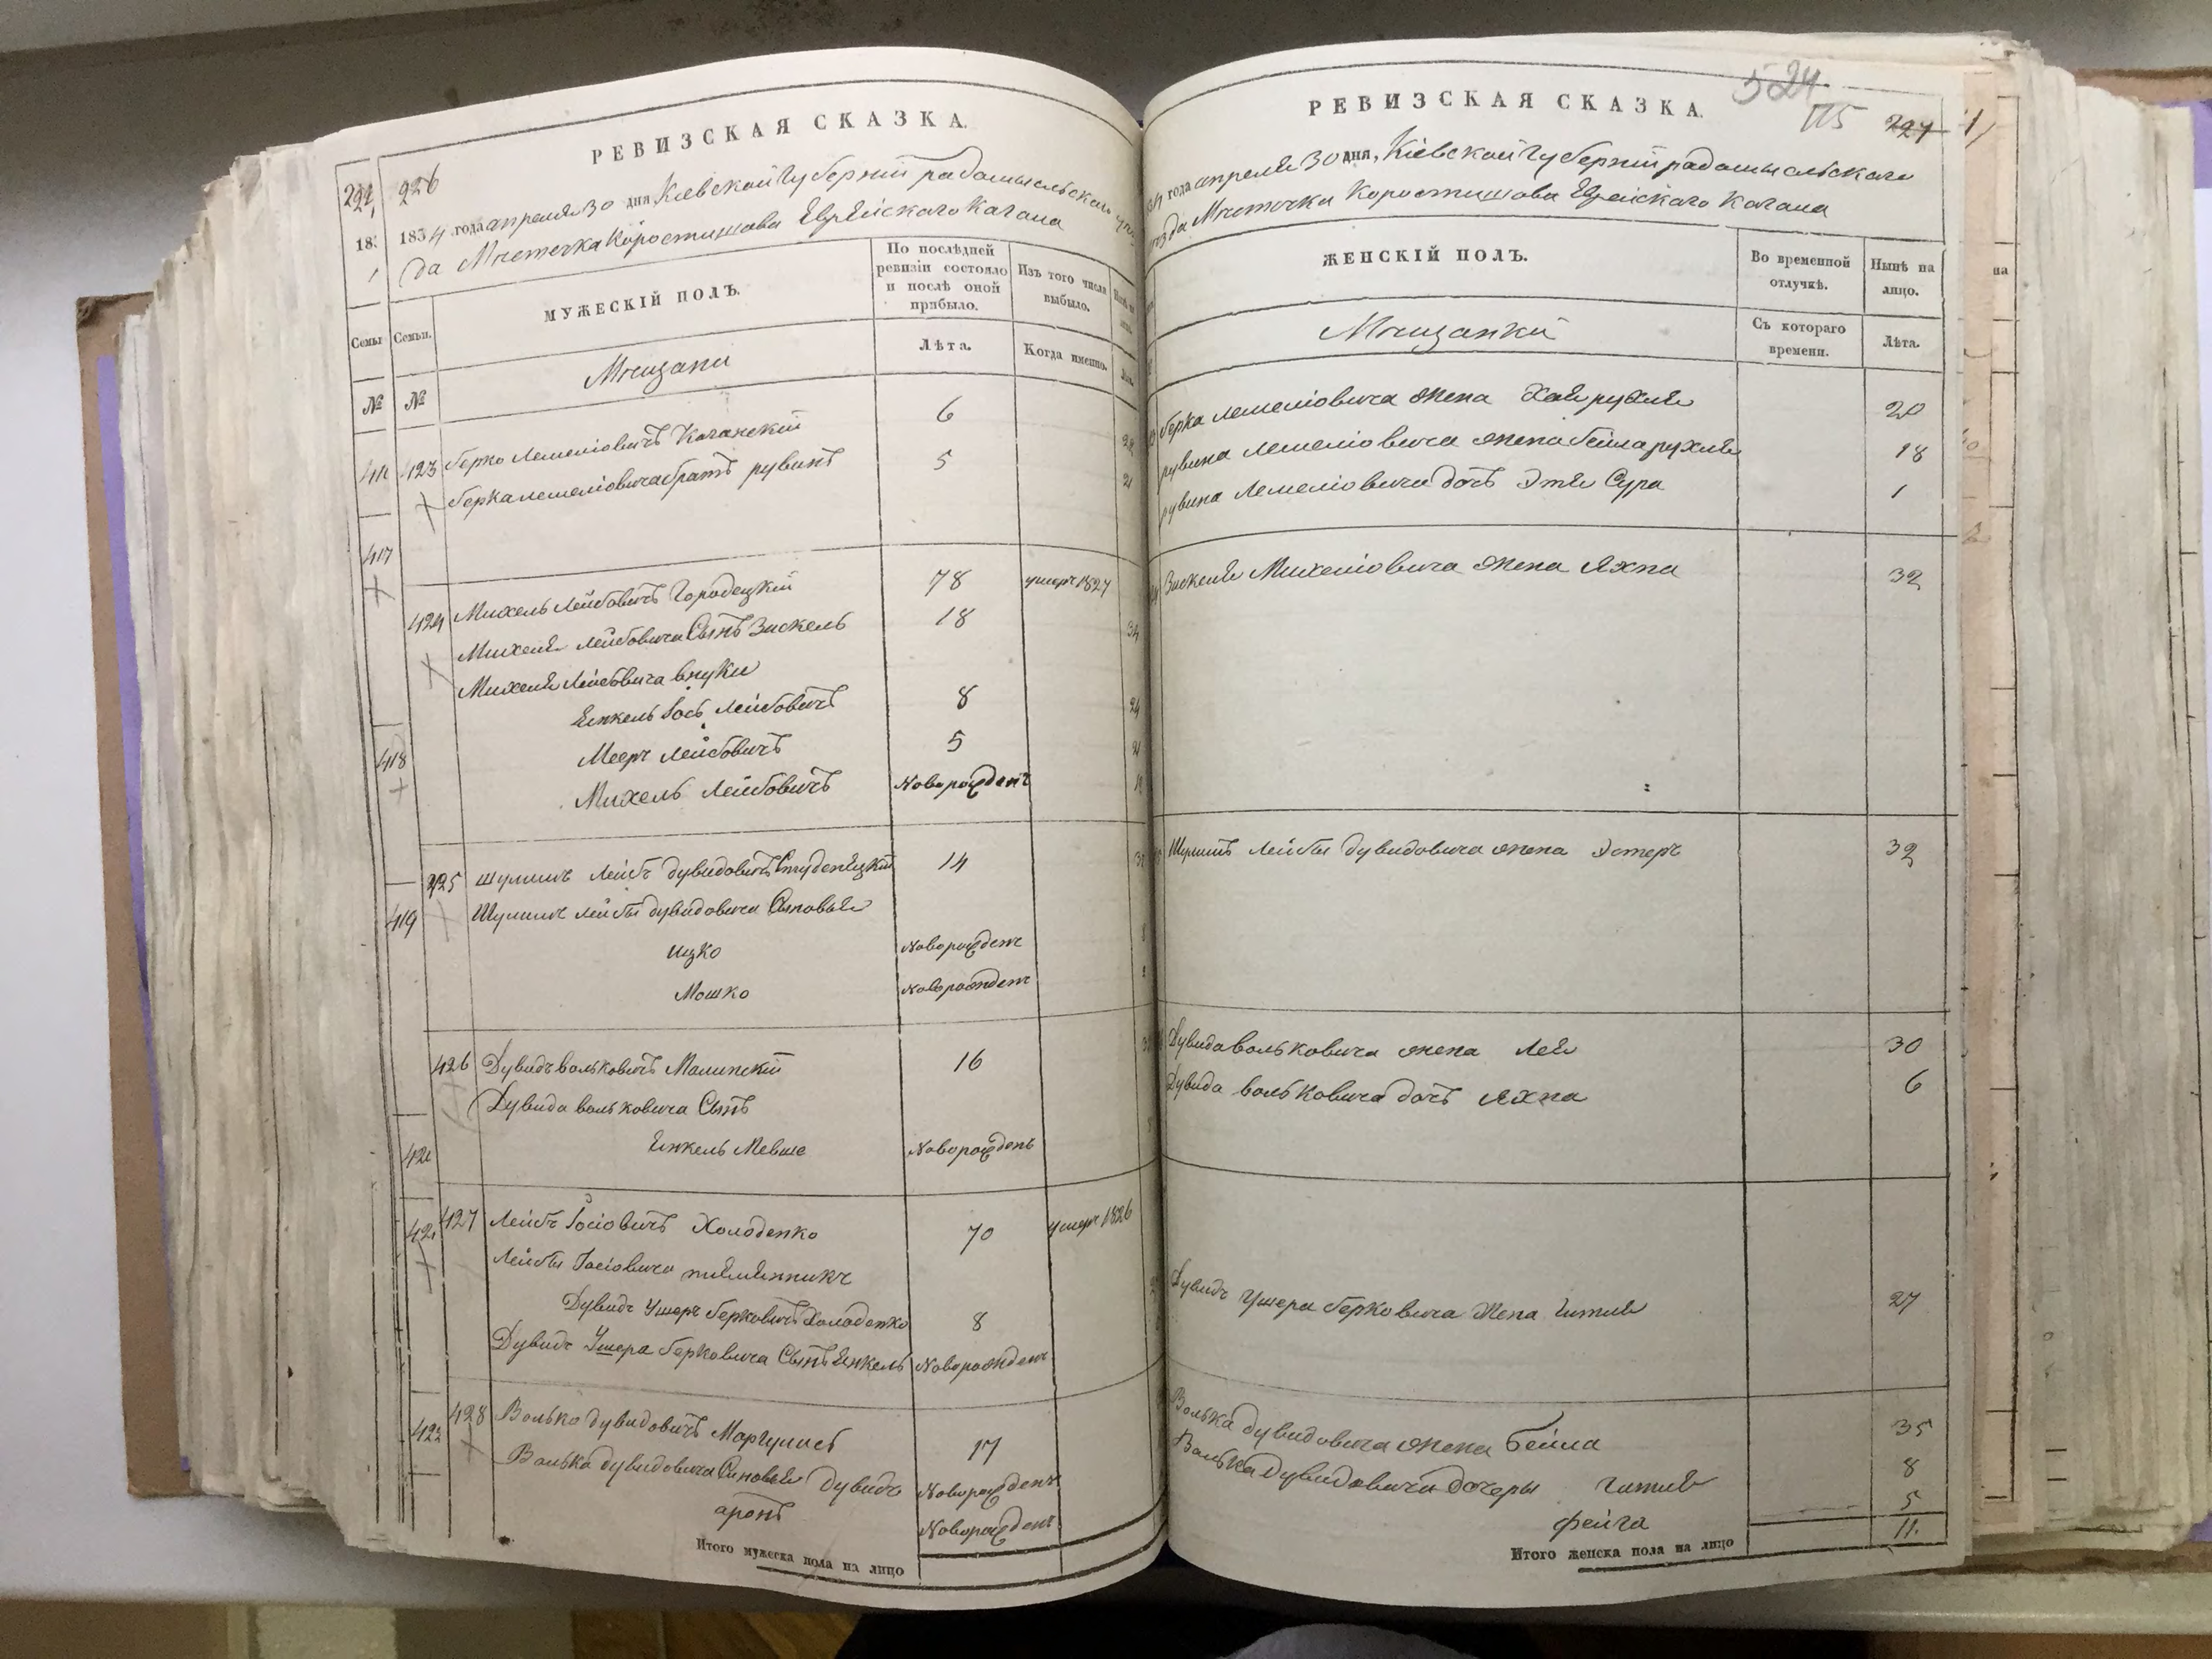 РЕВИЗСКАЯ СКАЗКА.
226
1834 года апреля 30 дня, Кіевской Губерніи радомысльского
да Мѣстечка Коростишова Еврейского Кагала
Семьи.
МУЖЕСКІЙ ПОЛЪ.
По послѣдней ревизіи состояло и послѣ оной прибыло.
Изъ того числа выбыло.
№
Мѣщани
Лѣта.
Когда именно.
423 берко Лемеліовичъ Каганскій 6
берка лемеліовича братъ рувинъ 5
424 Михель Лейбовичъ Городецкій 78 умеръ 1827
Михеля Лейбовича Сынъ Зискель 18
Михеля Лейбовича внуки
Янкель Іось Лейбовичъ 8
Мееръ Лейбовичъ 5
Михель Лейбовичъ Новорожденъ
425 шулимъ Лейбъ дувидовичъ Студенецкій 14
Шулимъ лейбы дувидовича Сыновья
ицко Новорожденъ
Мошко Новорожденъ
426 Дувидъ вольковичъ Малинскій 16
Дувида вольковича Сынъ
Янкель Мевше Новорожденъ
427 Лейбъ Іосіовичъ Холоденко 70 умеръ 1826
Лейбы Іосіовича племянникъ
Дувидъ Ушеръ берковичъ Холоденко 8
Дувидъ Ушера берковича Сынъ Янкель Новорожденъ
428 Волько дувидовичъ Маргулисъ 17
Волька дувидовича Сыновья Дувидъ Новорожденъ
аронъ Новорожденъ
Итого мужеска пола на лицо
Семьи
№
417
418
419
422
524
РЕВИЗСКАЯ СКАЗКА.
115 227
года апреля 30 дня, Кіевской Губерніи радомысльского
да Мѣстечка Коростишова Еврейского Кагала
ЖЕНСКІЙ ПОЛЪ.
Во временной отлучкѣ.
Нынѣ на лицо.
Мѣщанки
Съ котораго времени.
Лѣта.
берка лемеліовича жена Хая рухля 20
рувина лемеліовича жена бейла рухля 18
рувина Лемеліовича дочь Этя Сура 1
Зискеля Михеліовича жена Яхна 32
Шулимъ Лейбы дувидовича жена Эстеръ 32
Дувида вольковича жена Лея 30
Дувида вольковича дочь Яхна 6
Дувидъ Ушера берковича жена Гитля 27
Волька дувидовича жена Бейла 35
Волька дувидовича дочеры Гитля 8
фейга 5
Итого женска пола на лицо 11.